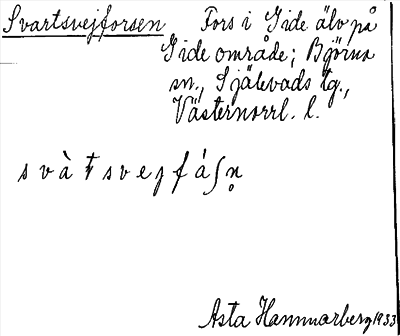 Svartsvejforsen Fors i Gide älv på
Gide område; Björna
sn., Själevads tg.,
Västernorrl. l.
s v à ŧ s v e j f á ʃ n̥
Asta Hammarberg 1933